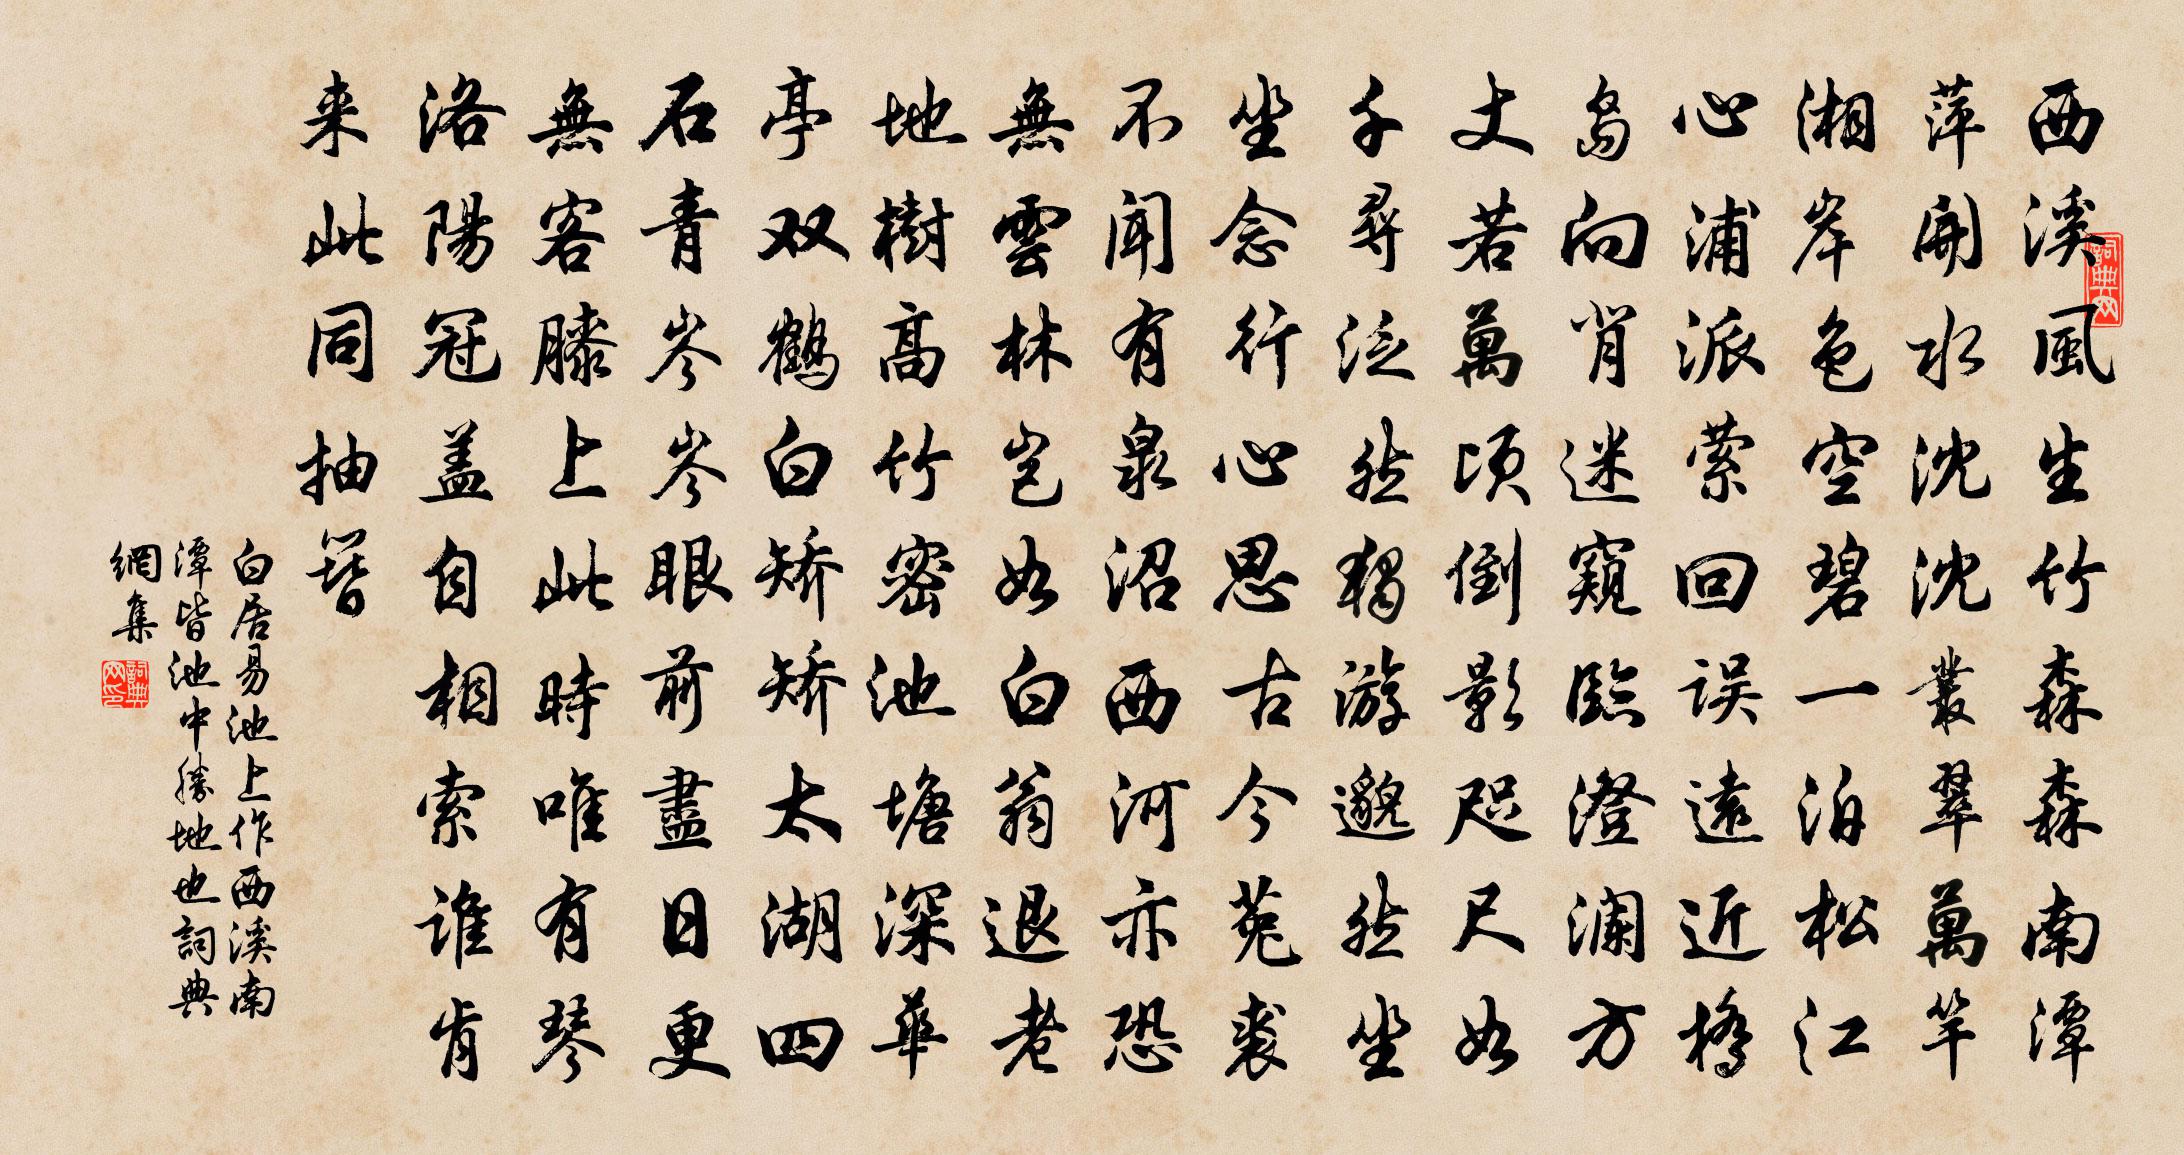 西溪風生竹森森南潭
萍開水沈沈叢翠萬竿
湘岸色空碧一泊松江
心浦派縈回误遠近橋
島向背迷窺臨澄澜方
丈若萬頃倒影咫尺如
千尋泛然獨游邈然坐
坐念行心思古今菟裘
不闻有泉沼西河亦恐
無雲林岂如白翁退老
地樹高竹密池塘深華
亭双鶴白矫矫太湖四
石青岑岑眼前盡日更
無客膝上此時唯有琴
洛陽冠盖自相索谁肯
来此同抽簪
白居易池上作西溪南
潭皆池中勝地也詞典
網集
詞典网
詞典网印